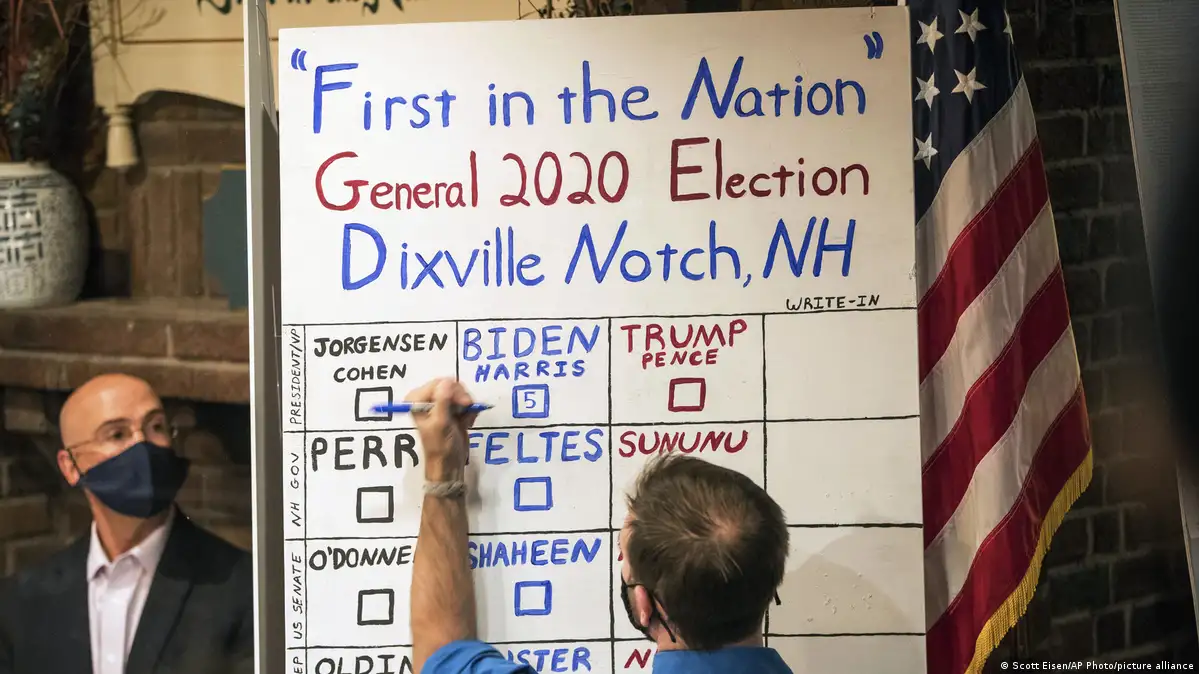 "First in the Nation"
General 2020 Election
Dixville Notch, NH
WRITE-IN
PRESIDENT/VP
JORGENSEN
COHEN
BIDEN
HARRIS
5
TRUMP
PENCE
NH GOV
PERR
FELTES
SUNUNU
US SENATE
O'DONNE
SHAHEEN
EP
OLDIN
STER
N
© Scott Eisen/AP Photo/picture alliance